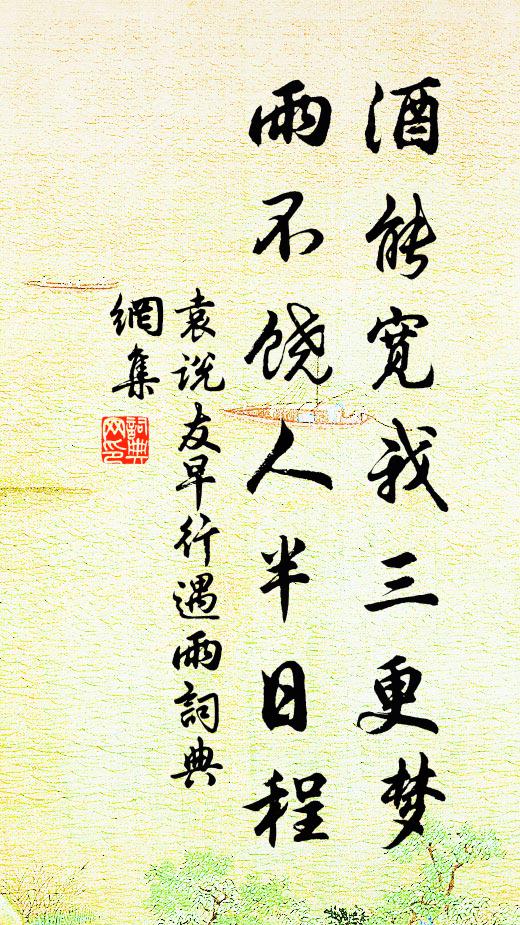 酒能宽我三更梦
雨不饶人半日程
袁说友早行遇雨詞典
網集
詞典
网印